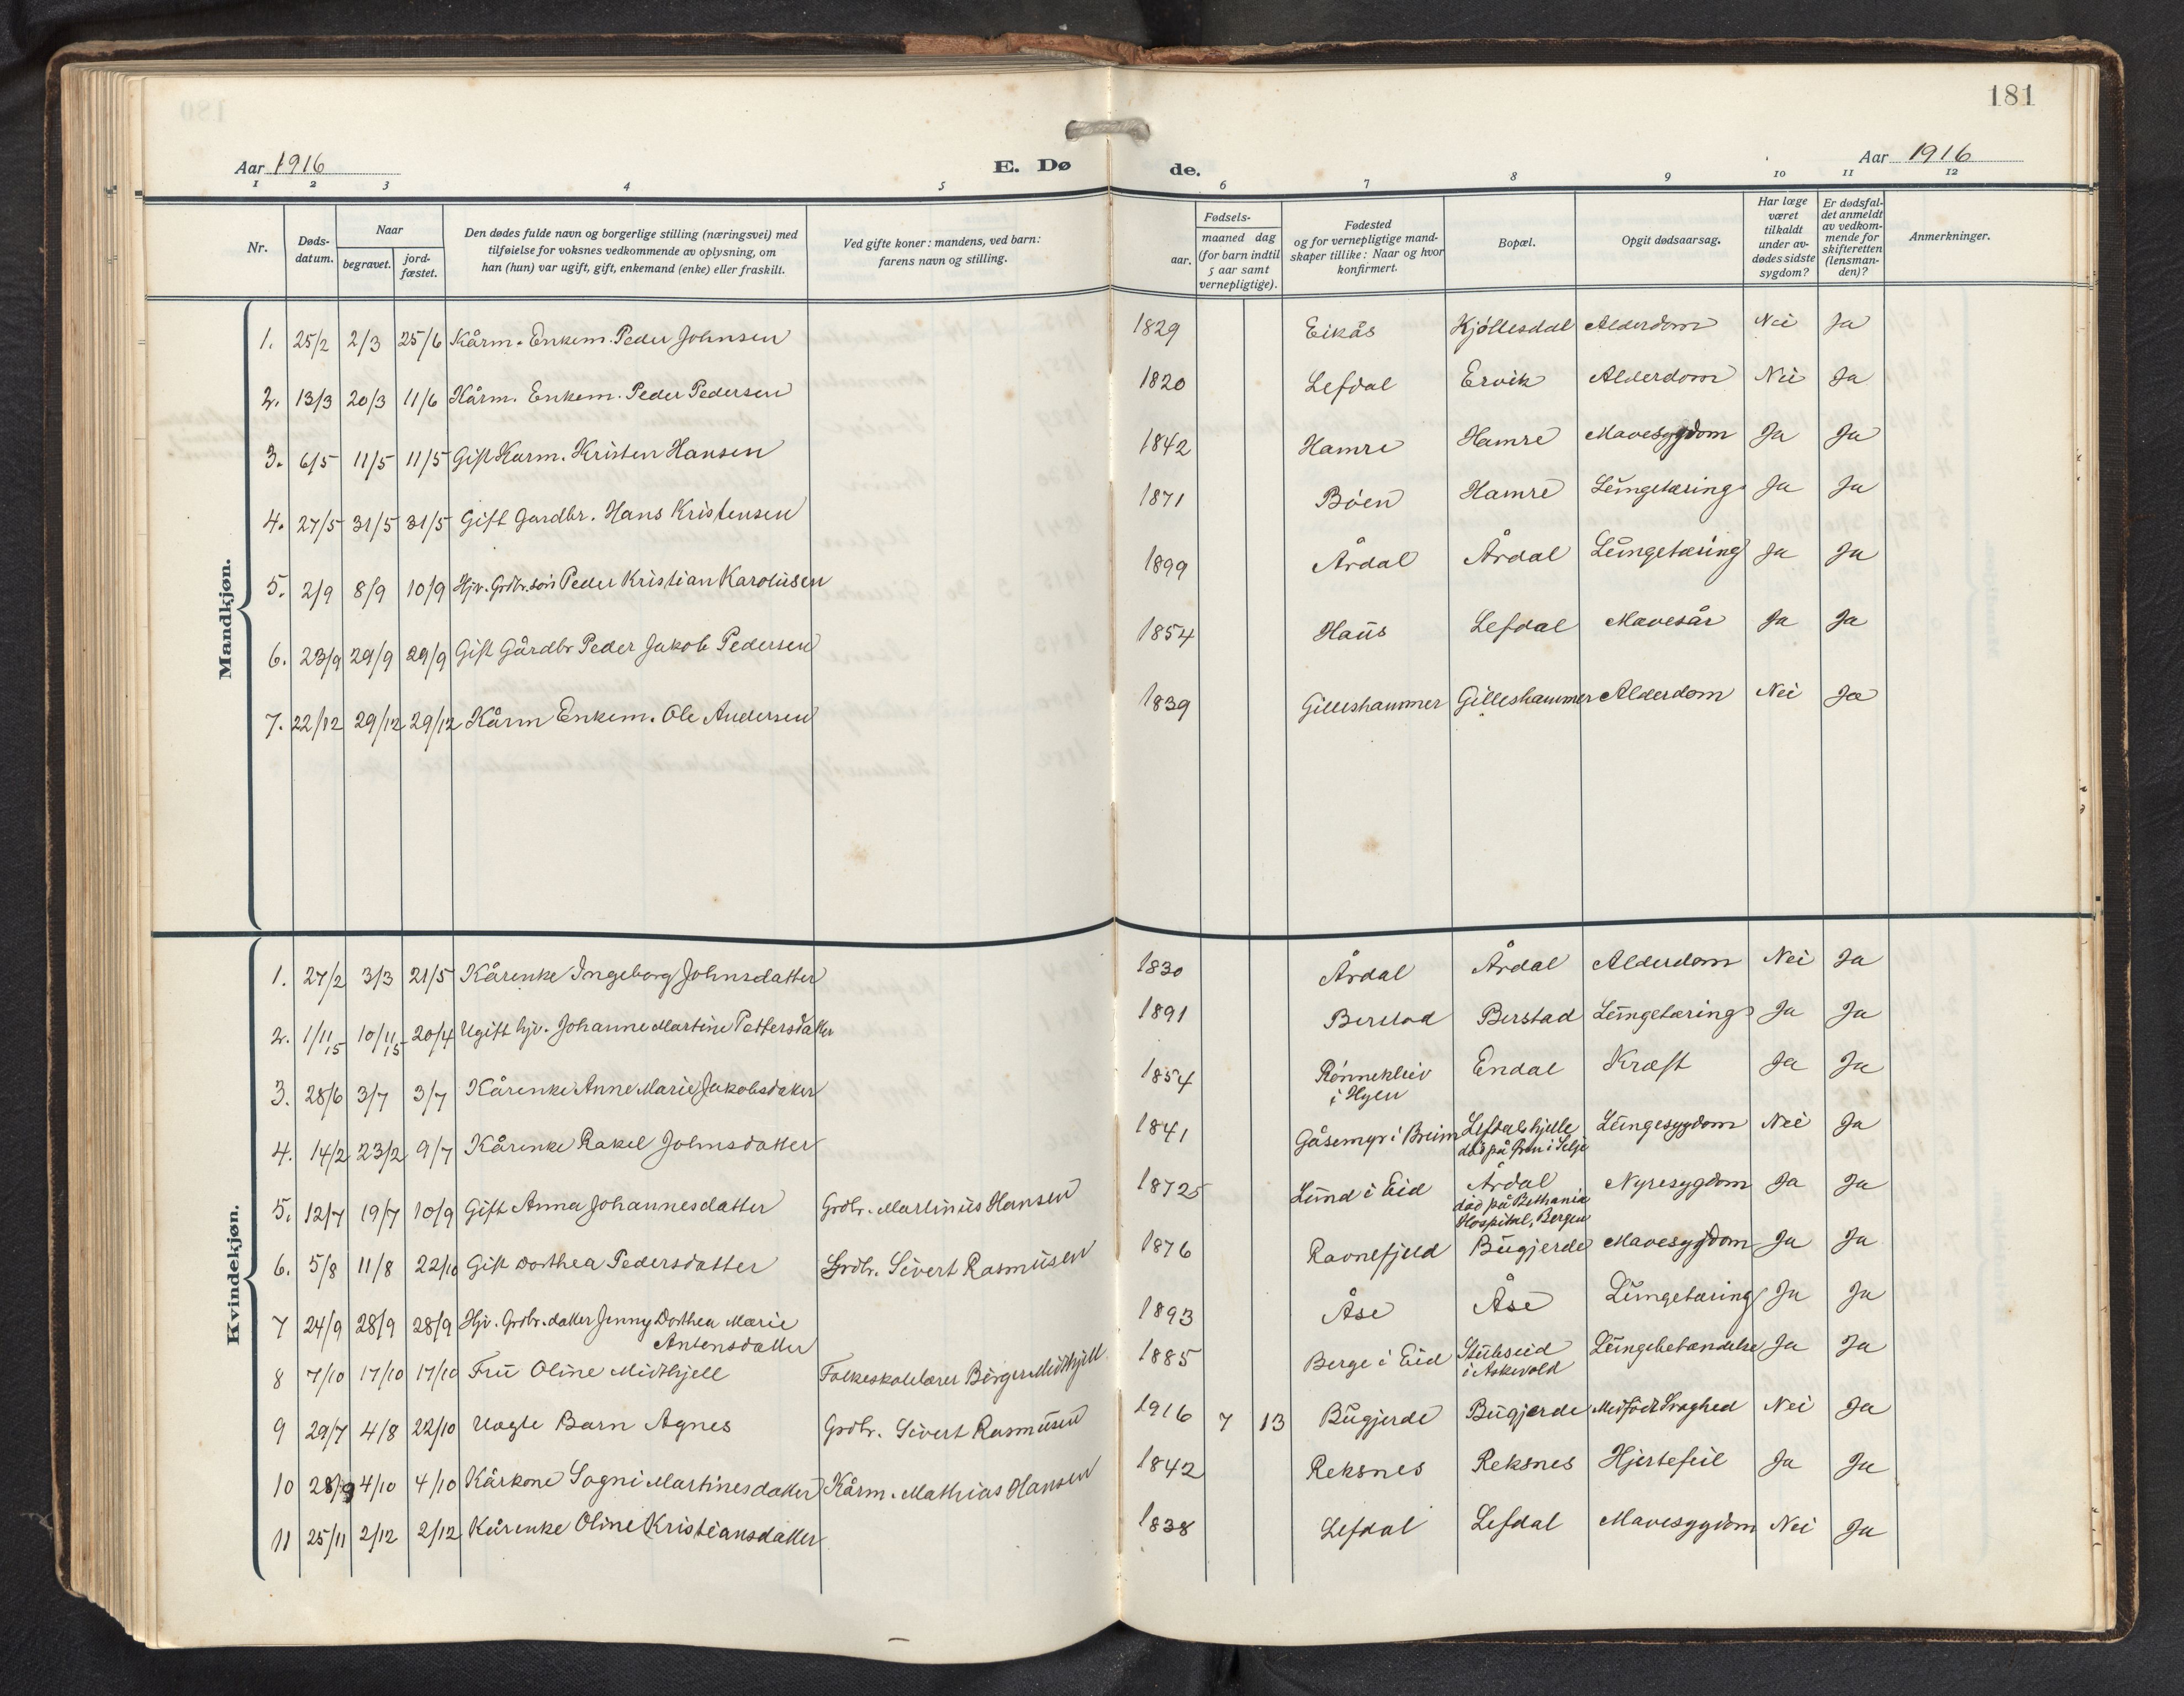 181
Aar 1916 E. Dø de. Aar 1916
1 2 3 4 5 6 7 8 9 10 11 12
Nr. Døds-datum. Naar begravet. jord-fæstet. Den dødes fulde navn og borgerlige stilling (næringsvei) med tilføielse for voksnes vedkommende av oplysning, om han (hun) var ugift, gift, enkemand (enke) eller fraskilt. Ved gifte koner: mandens, ved barn: farens navn og stilling. Fødsels- aar. maaned dag (for barn indtil 5 aar samt vernepligtige). Fødested og for vernepligtige mand-skaper tillike: Naar og hvor konfirmert. Bopæl. Opgit dødsaarsag. Har læge været tilkaldt under av-dødes sidste sygdom? Er dødsfal-det anmeldt av vedkom-mende for skifteretten (lensman-den)? Anmerkninger.
Mandkjøn.
1. 25/2 2/3 25/6 Kårm. Enkem. Peder Johnsen 1829 Eikås Kjöllesdal Alderdom Nei Ja
2. 13/3 20/3 11/6 Kårm. Enkem. Peder Pedersen 1820 Lefdal Ervik Alderdom Nei Ja
3. 6/5 11/5 11/5 Gift Karm. Kristen Hansen 1842 Hamre Hamre Mavesygdom Ja Ja
4. 27/5 31/5 31/5 Gift Gardbr. Hans Kristensen 1871 Böen Hamre Lungetæring Ja Ja
5. 2/9 8/9 10/9 Hjv. Grdbr. sön Peder Kristian Karolusen 1899 Årdal Årdal Lungetæring Ja Ja
6. 23/9 29/9 29/9 Gift Gårdbr Peder Jakob Pedersen 1854 Haus Lefdal Mavesår Ja Ja
7. 22/12 29/12 29/12 Kårm Enkem. Ole Andersen 1839 Gilleshammer Gilleshammer Alderdom Nei Ja
Kvindekjøn.
1. 27/2 3/3 21/5 Kårenke Ingeborg Johnsdatter 1830 Årdal Årdal Alderdom Nei Ja
2. 1/11 15 10/11 15 20/4 Ugift hjv. Johanne Martine Pettersdatter 1891 Berstad Berstad Lungetæring Ja Ja
3. 28/6 3/7 3/7 Kårenke Anne Marie Jakobsdatter 1854 Rönnekleiv i Hyen Endal Kræft Ja Ja
4. 14/2 23/2 9/7 Kårenke Rakel Johnsdatter 1841 Gåsemyr i Breim Lefdalshjelle död på Gren i Selje Lungesygdom Nei Ja
5. 12/7 19/7 10/9 Gift Anna Johannesdatter Grdbr. Martinus Hansen 1872 Lund i Eid Årdal död på Bethania Hospital, Bergen Nyresygdom Ja Ja
6. 5/8 11/8 22/10 Gift Dorthea Pedersdatter Grdbr. Sivert Rasmusen 1876 Ravnefjeld Bugjerde Mavesygdom Ja Ja
7 24/9 28/9 28/9 Hjv. Grdbr. datter Jenny Dorthea Marie Antonsdatter 1893 Åse Åse Lungetæring Ja Ja
8 7/10 17/10 17/10 Fru Oline Midthjell Folkeskolelærer Börger Midthjell 1885 Berge i Eid Stubseid i Askevold Lungebetændelse Ja Ja
9 29/7 4/8 22/10 Uægte Barn Agnes Grdbr. Sivert Rasmusen 1916 7 13 Bugjerde Bugjerde Medfödt Svaghed Nei Ja
10 28/9 4/10 4/10 Kårkone Sogni Martinesdatter Kårm. Mathias Hansen 1842 Reksnes Reksnes Hjertefeil Ja Ja
11 25/11 2/12 2/12 Kårenke Oline Kristiansdatter 1838 Lefdal Lefdal Mavesygdom Nei Ja